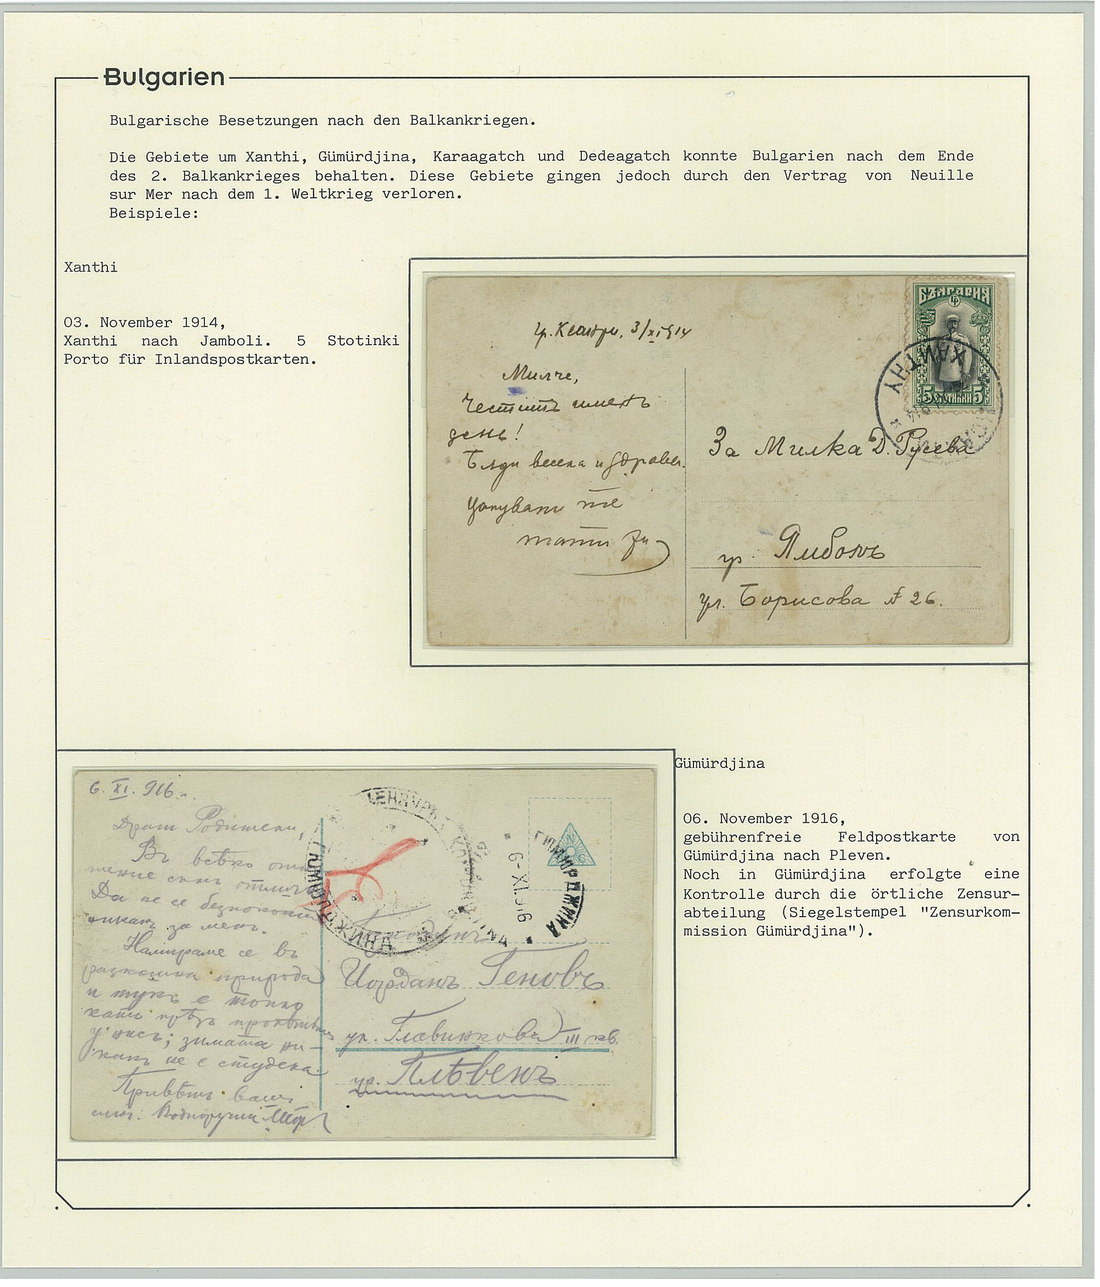 Bulgarien
Bulgarische Besetzungen nach den Balkankriegen.
Die Gebiete um Xanthi, Gümürdjina, Karaagatch und Dedeagatch konnte Bulgarien nach dem Ende
des 2. Balkankrieges behalten. Diese Gebiete gingen jedoch durch den Vertrag von Neuille
sur Mer nach dem 1. Weltkrieg verloren.
Beispiele:
Xanthi
03. November 1914,
Xanthi nach Jamboli. 5 Stotinki
Porto für Inlandspostkarten.
БЪЛГАРИЯ
5 СТОТИНКИ 5
XANTHY
гр. Ксанти, 3/XI 914
Милче,
Честитъ именъ
день!
Бѫди весела и здрава.
Цѫлувамъ те
За Милка Д. Русева
гр. Ямболъ
ул. Борисова № 26.
Gümürdjina
06. November 1916,
gebührenfreie Feldpostkarte von
Gümürdjina nach Pleven.
Noch in Gümürdjina erfolgte eine
Kontrolle durch die örtliche Zensur-
abteilung (Siegelstempel "Zensurkom-
mission Gümürdjina").
6. XI. 916.
Драги Родители,
Въ всѣко отно-
шение съмъ отлично
Да не се безпокоите
никакъ за мень.
Намираме се въ
разкошна природа
и тукъ е топло
като прѣзъ
у насъ; зимата ни-
какъ не е студена.
ГЮМЮРДЖИНА
6-XI.916
ГЮМЮРДЖИНА
Йорданъ Геновъ
ул. III кв.
гр. Плѣвенъ